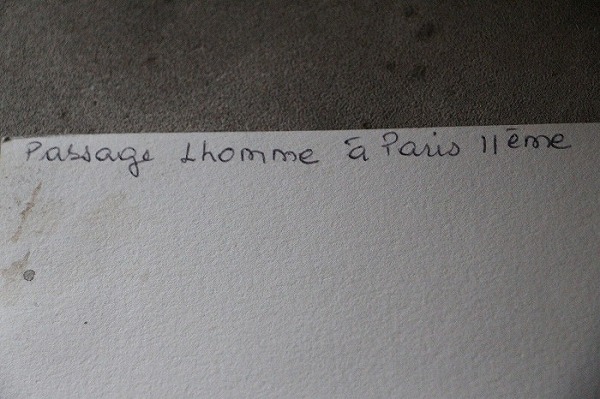 Passage Lhomme à Paris 11ème